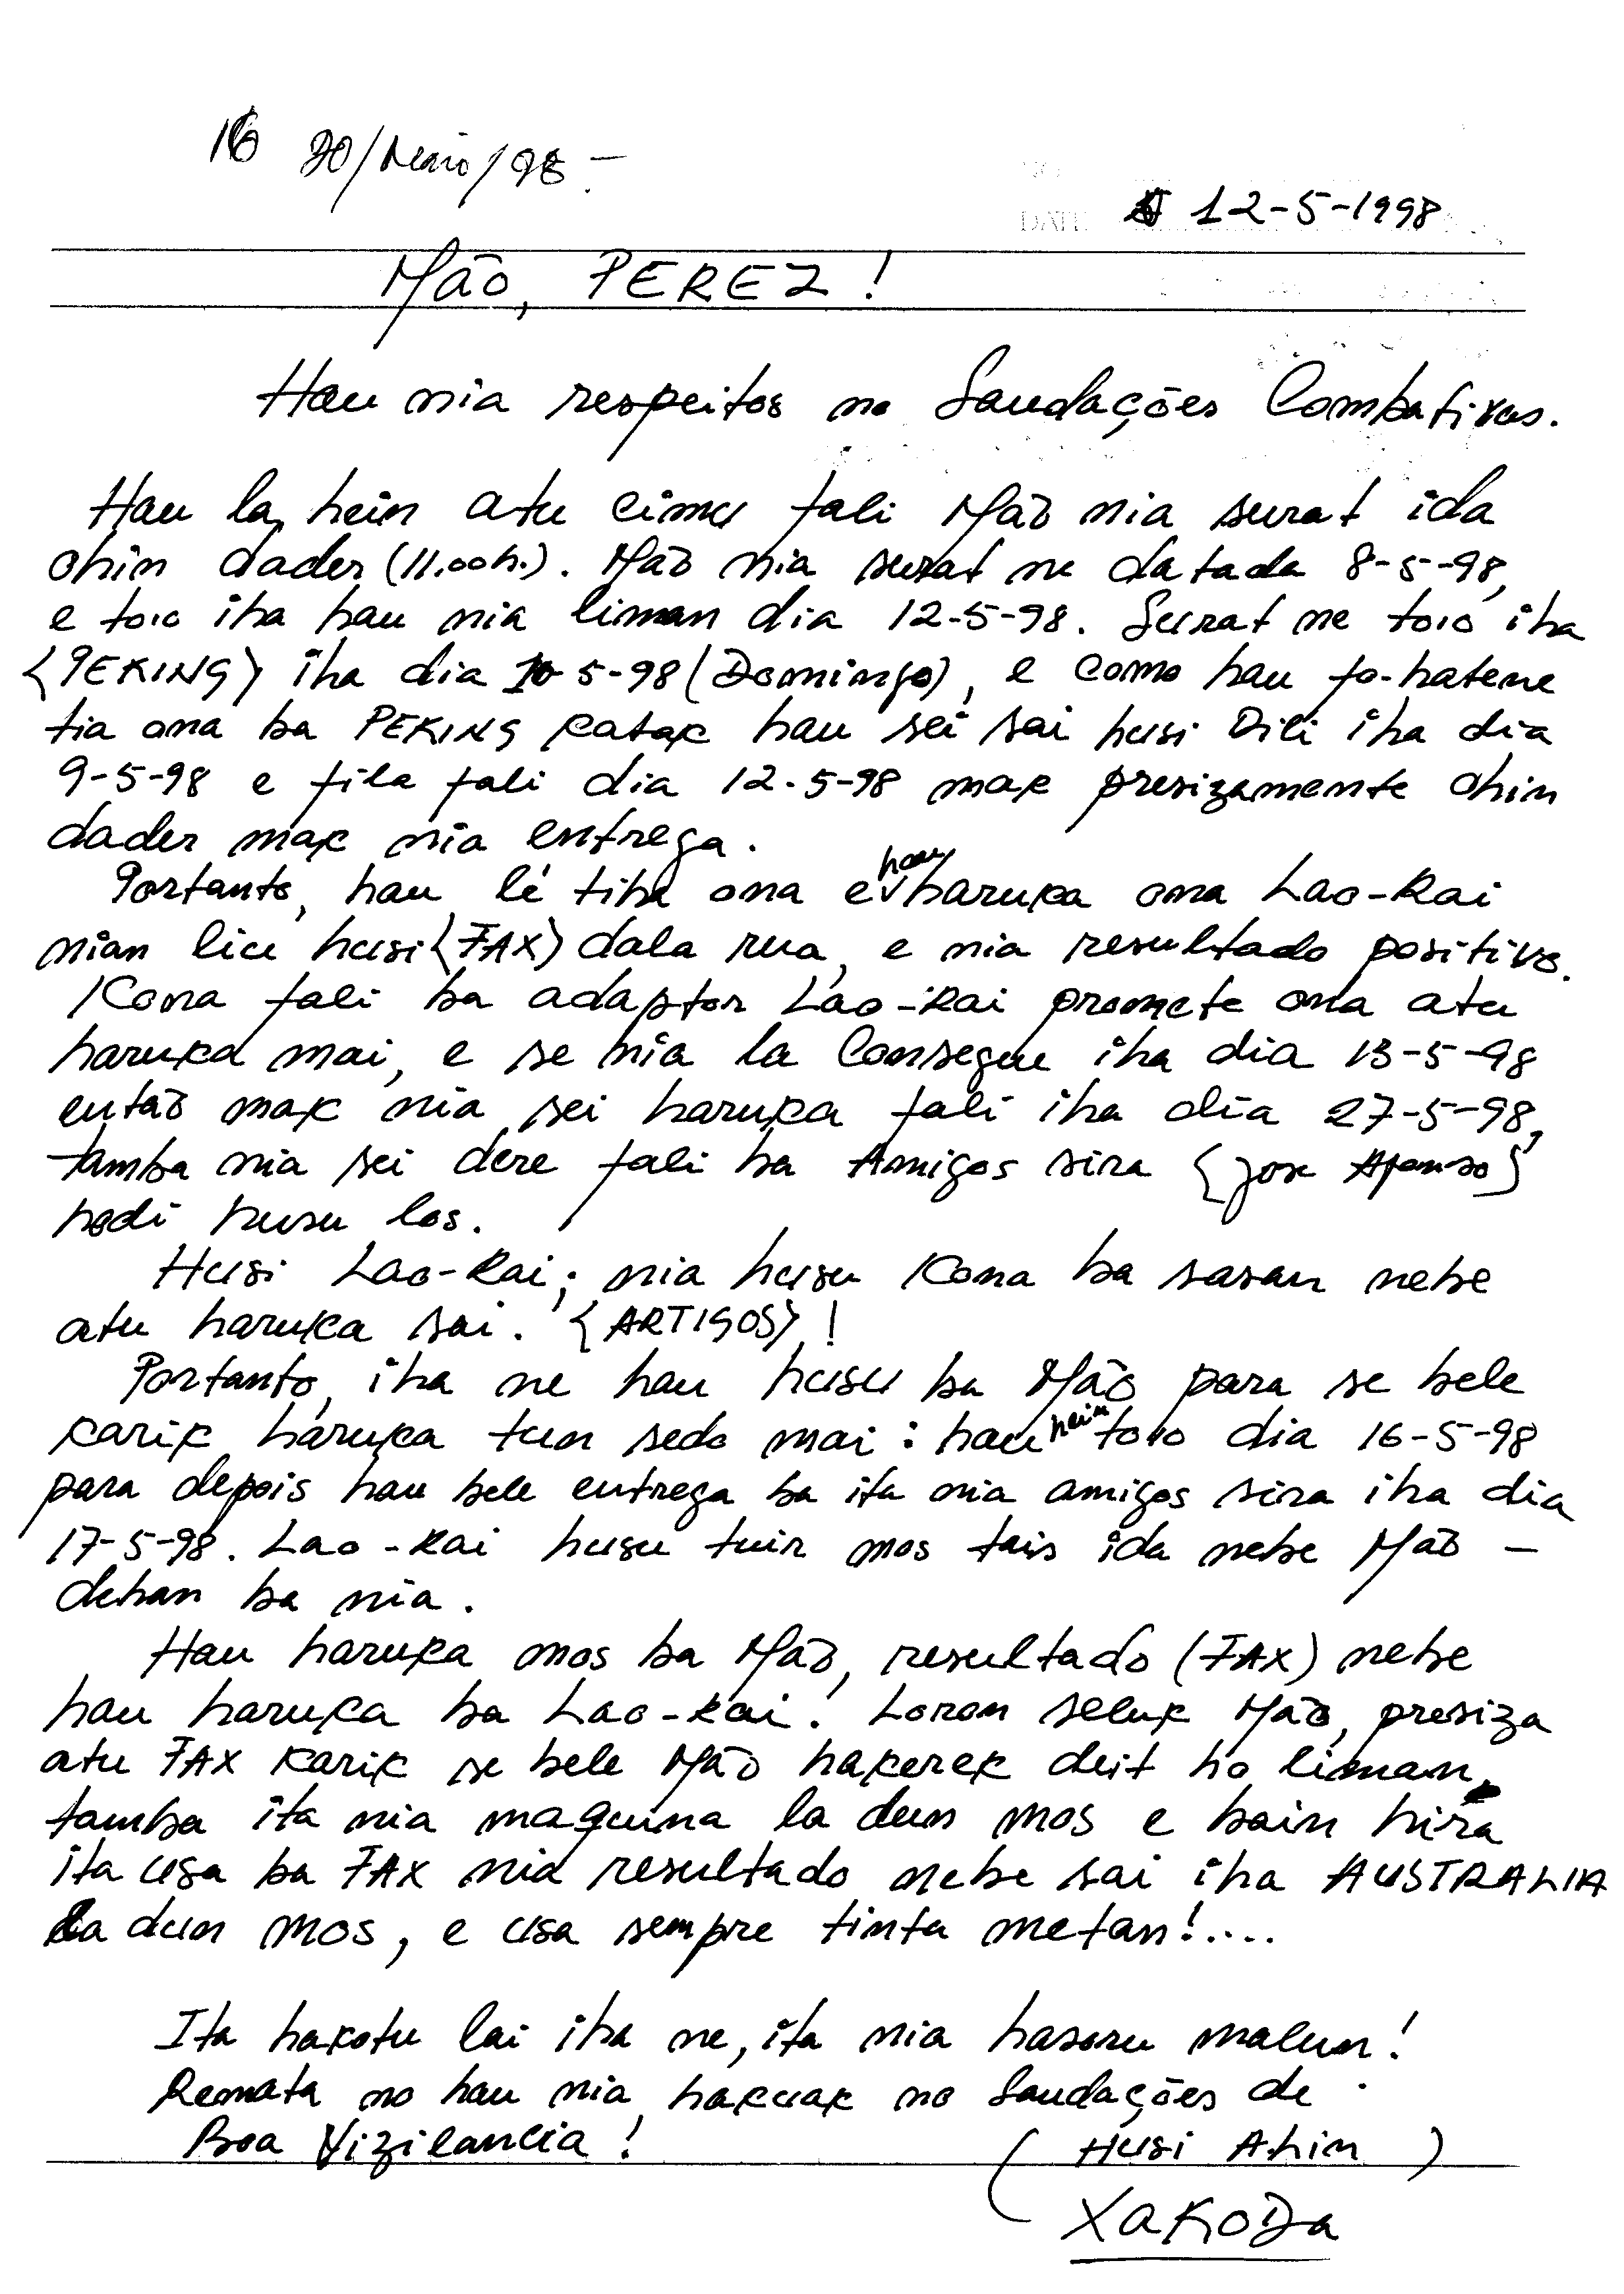 16 20/Maio/98.-
12-5-1998
Mão, PEREZ!
Hau nia respeitos no Saudações Combativas.
Hau la, hein atu simu fali Mão nia surat ida
ohin dader (11.00h.). Mão nia surat ne datada 8-5-98,
e to'o iha hau nia liman dia 12-5-98. Surat ne to'o iha
{PEKING} iha dia 10-5-98 (Domingo), e como hau fo-hatene
tia ona ba PEKING katak hau sei sai husi Dili iha dia
9-5-98 e fila fali dia 12-5-98 mak presizamente ohin
dader mak nia entrega.
Portanto, hau lé tiha ona e hau haruka ona Lao-Rai
nian liu husi {FAX} dala rua, e nia resultado positivo.
Kona fali ba adaptor Lao-Rai promete ona atu
haruka mai, e se nia la consegue iha dia 13-5-98
então mak nia sei haruka fali iha dia 27-5-98,
tamba nia sei dere fali ba Amigos sira {Jose Afonso}
hodi husu los.
Husi Lao-Rai; nia husu kona ba sasan nebe
atu haruka sai. {ARTIGOS}!
Portanto, iha ne hau husu ba Mão para se bele
karik haruka tun sedo mai: hau hein to'o dia 16-5-98
para depois hau bele entrega ba ita nia amigos sira iha dia
17-5-98. Lao-Rai husu tuir mos tais ida nebe Mão -
dehan ba nia.
Hau haruka mos ba Mão, resultado (FAX) nebe
hau haruka ba Lao-Rai! Loron seluk Mão, presiza
atu FAX karik se bele Mão hakerek deit ho liman,
tamba ita nia maquina la dun mos e bain hira
ita usa ba FAX nia resultado nebe sai iha AUSTRALIA
la dun mos, e usa sempre tinta metan!....
Ita hakotu lai iha ne, ita nia hasoru malun!
Remata no hau nia hakuak no Saudações de
Boa Vizilancia!
(Husi Ahin)
XAKODA